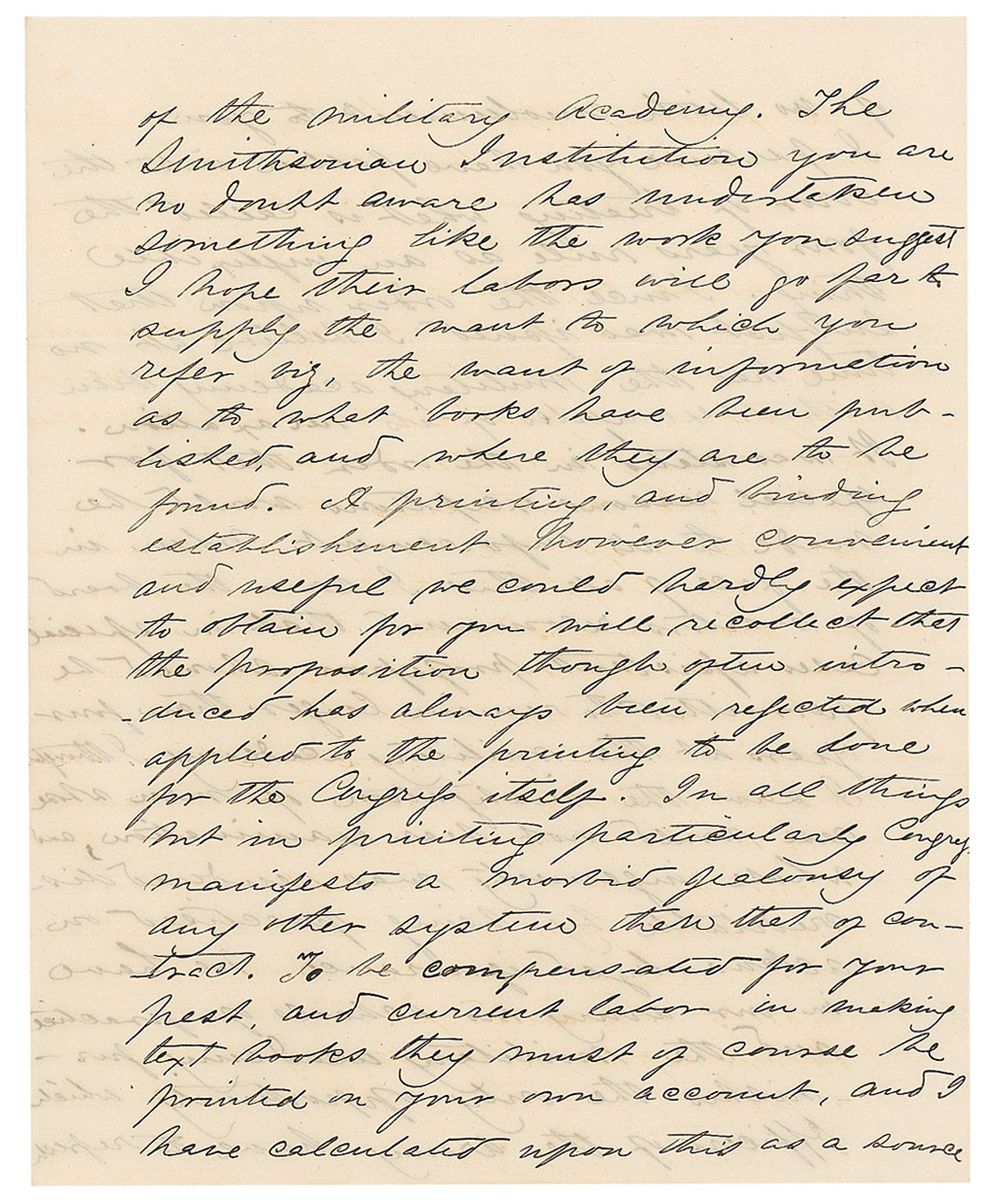 of the military Academy. The
Smithsonian Institution you are
no doubt aware has undertaken
something like the work you suggest
I hope their labors will go far to
supply the want to which you
refer viz, the want of information
as to what books have been pub-
lished, and where they are to be
found. A printing, and binding
establishment however convenient
and useful we could hardly expect
to obtain for you will recollect that
the proposition though often intro-
-duced has always been rejected when
applied to the printing to be done
for the Congress itself. In all things
but in printing particularly Congress
manifests a morbid jealousy of
any other system then that of con-
tract. To be compensated for your
past, and current labor in making
text books they must of course be
printed on your own account, and I
have calculated upon this as a source